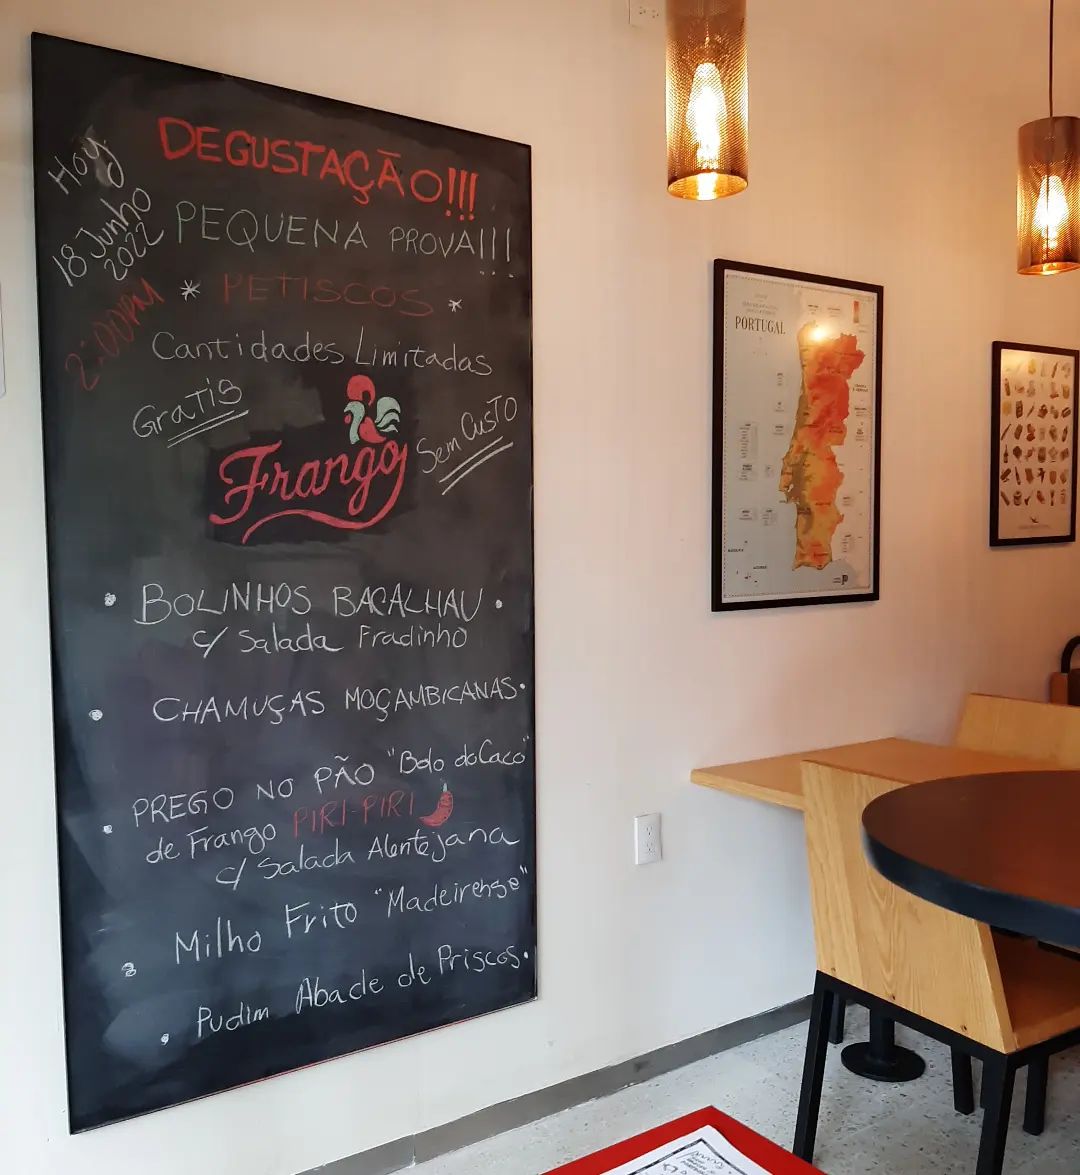 DEGUSTAÇÃO!!!
Hoy
18 Junho
2022
2:00PM
PEQUENA PROVA!!!
* PETISCOS *
Cantidades Limitadas
Gratis
Sem Custo
Frango
• BOLINHOS BACALHAU •
c/ Salada Fradinho
• CHAMUÇAS MOÇAMBICANAS •
• PREGO NO PÃO "Bolo do Caco"
de Frango PIRI-PIRI
c/ Salada Alentejana
• Milho Frito "Madeirense"
• Pudim Abade de Priscos •
PORTUGAL